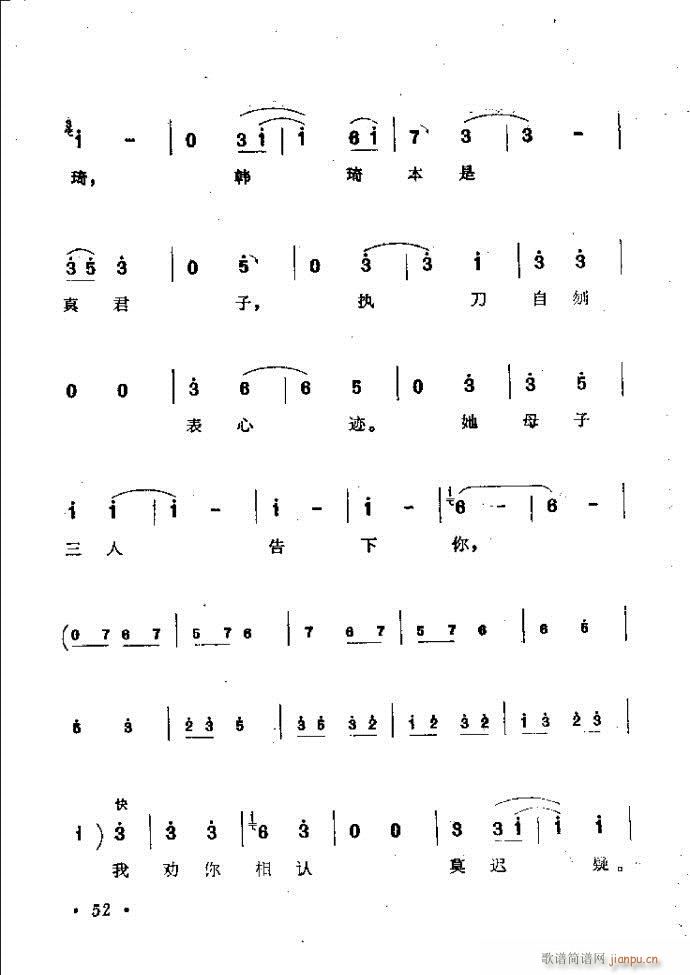 3 i - | 0 3 i | i 6 i | 7 3 | 3 - |
琦， 韩 琦 本 是
3 5 3 | 0 5 | 0 3 | 3 i | 3 3 |
真 君 子， 执 刀 自 刎
0 0 | 3 6 | 6 5 | 0 3 | 3 5 |
表 心 迹。 她 母 子
i i | i - | i - | i - | i 6 - | 6 - |
三 人 告 下 你，
( 0 7 6 7 | 5 7 6 | 7 6 7 | 5 7 6 | 6 5 |
6 3 | 2 3 5 | 3 5 3 2 | i 2 3 2 | i 3 2 3 |
快
i ) 3 | 3 3 | i 6 3 | 0 0 | 3 3 i | i i |
我 劝 你 相 认 莫 迟 疑。
· 52 ·
歌谱简谱网 jianpu.cn